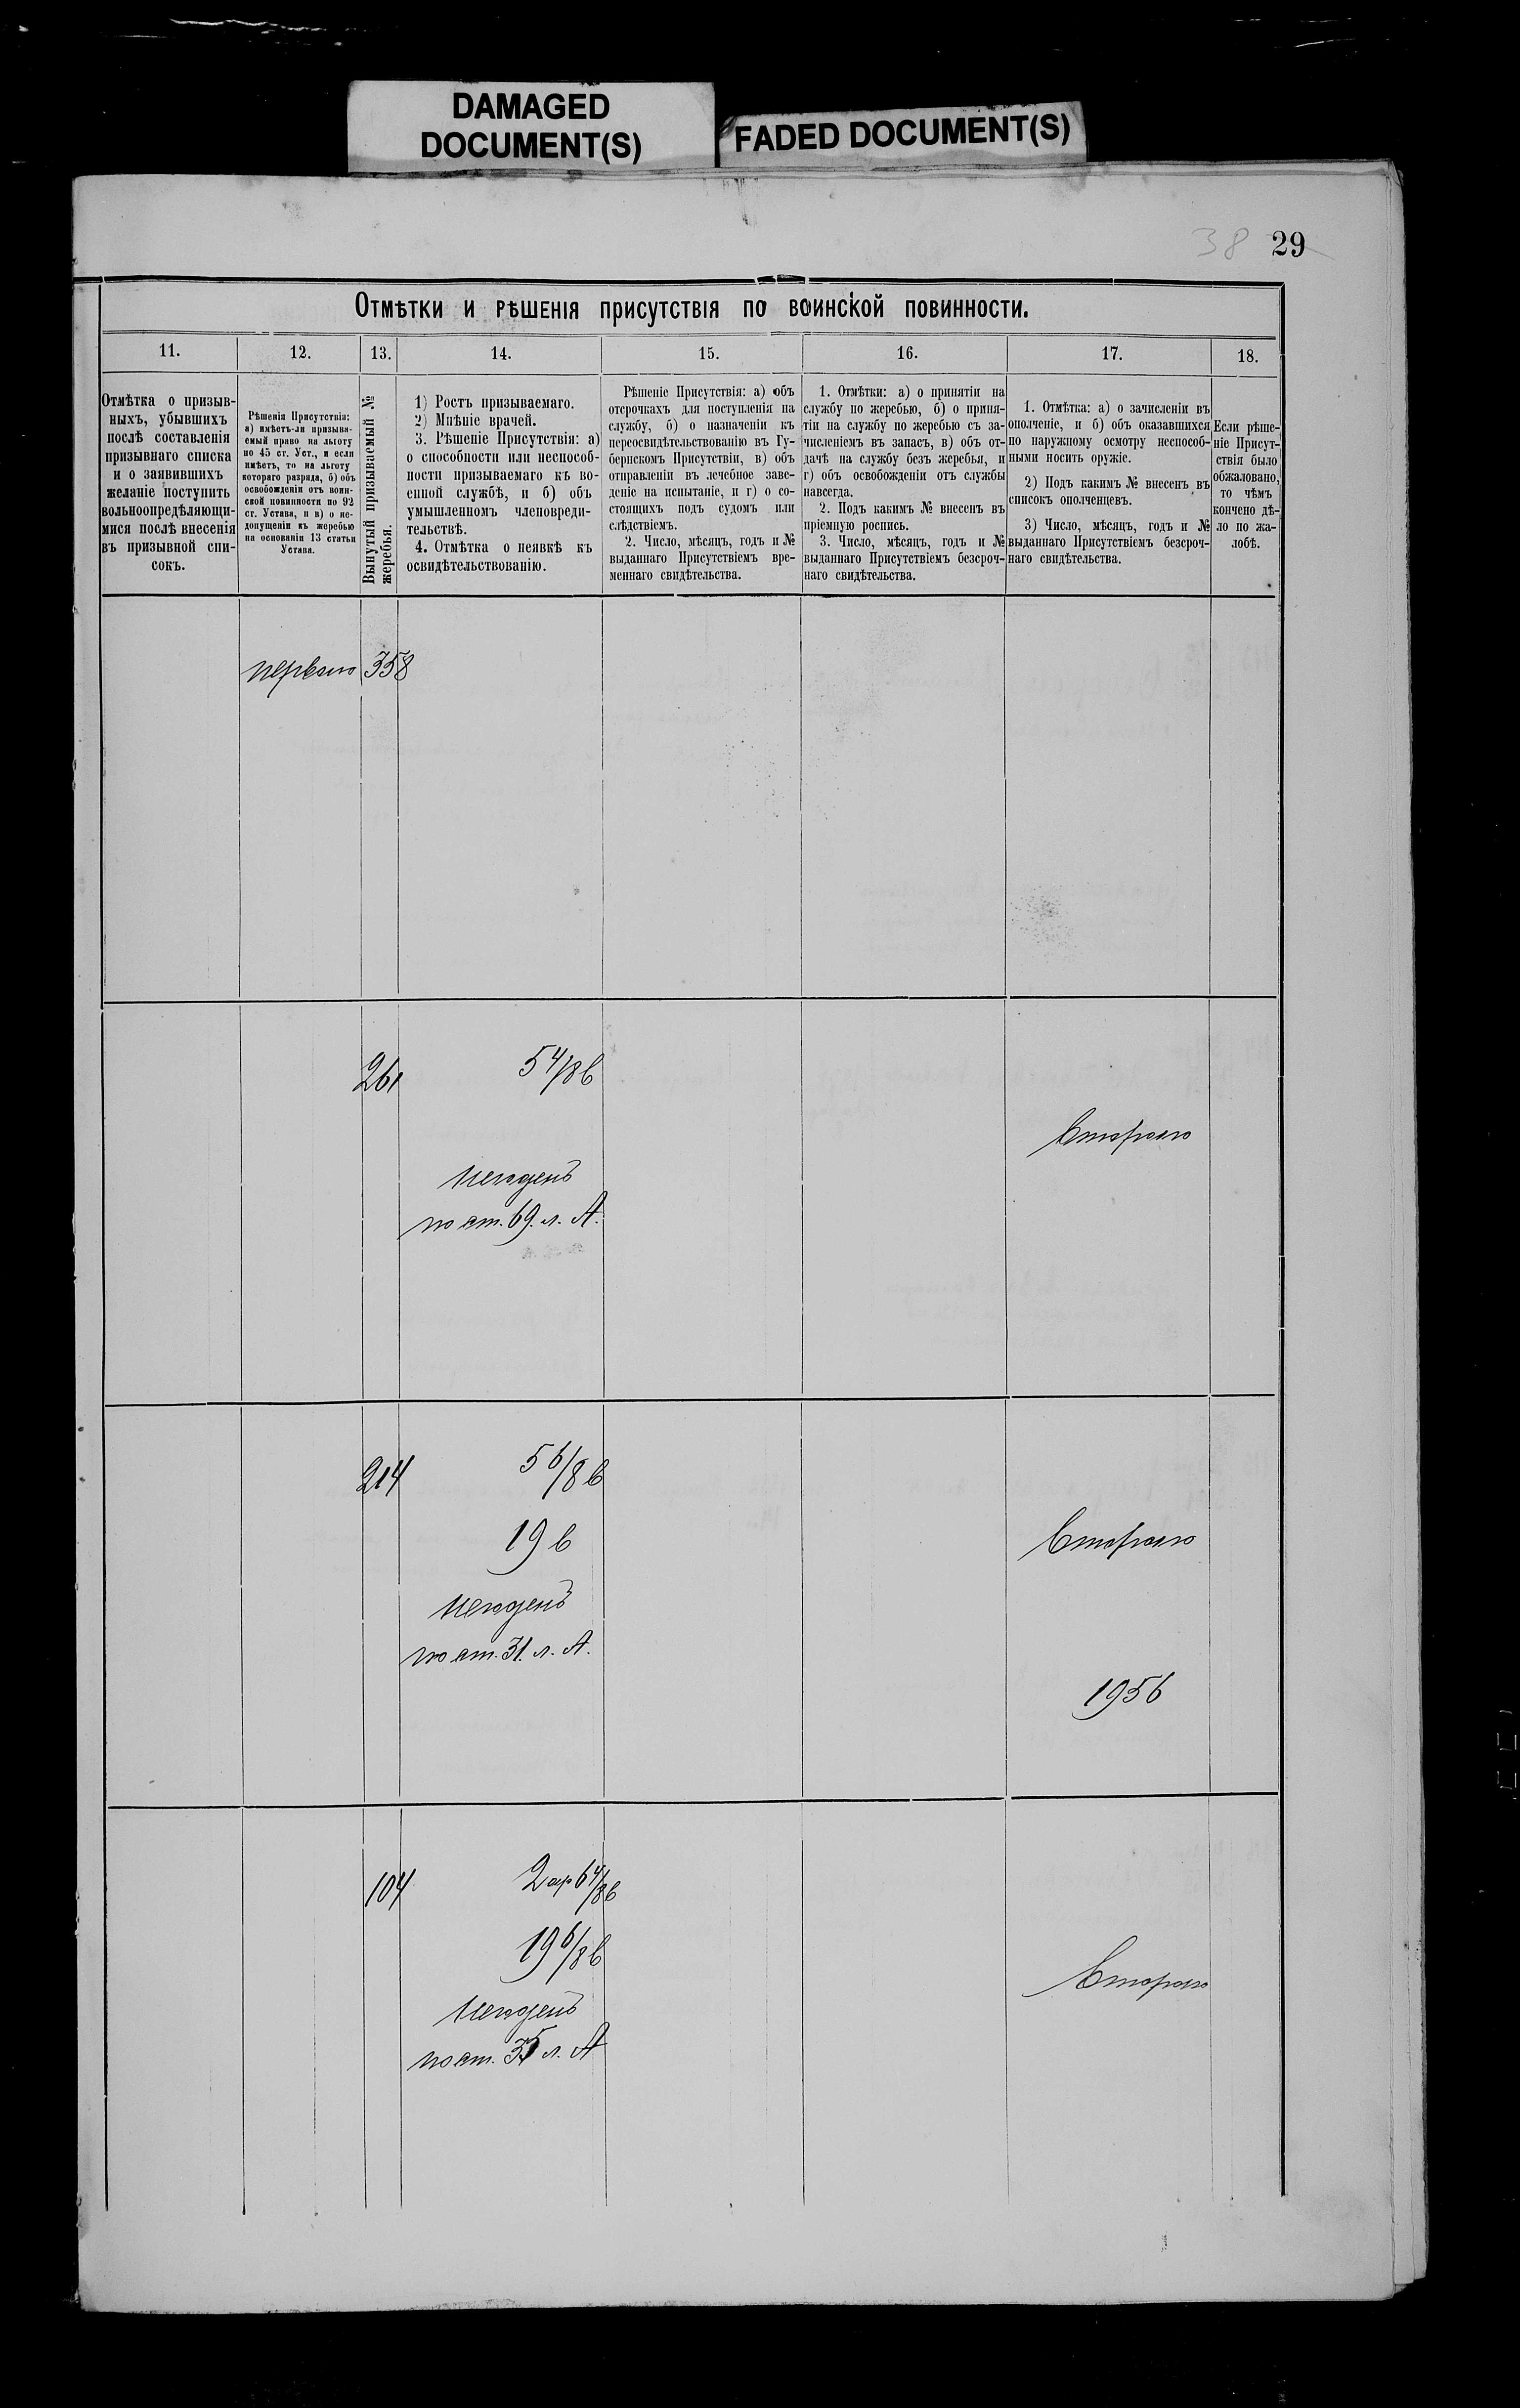 DAMAGED
DOCUMENT(S)
FADED DOCUMENT(S)
38 29
Отмѣтки и рѣшенія присутствія по воинской повинности.
11. 12. 13. 14. 15. 16. 17. 18.
Отмѣтка о призыв-
ныхъ, убывшихъ
послѣ составленія
призывнаго списка
и о заявившихъ
желаніе поступить
вольноопредѣляющи-
мися послѣ внесенія
въ призывной спи-
сокъ.
Рѣшенія Присутствія:
а) имѣетъ-ли призыва-
емый право на льготу
по 45 ст. Уст., и если
имѣетъ, то на льготу
котораго разряда, б) объ
освобожденіи отъ воин-
ской повинности по 92
ст. Устава, и в) о не-
допущеніи къ жеребью
на основаніи 13 статьи
Устава.
Вынутый призываемый №
жеребья.
1) Ростъ призываемаго.
2) Мнѣніе врачей.
3. Рѣшеніе Присутствія: а)
о способности или неспособ-
ности призываемаго къ во-
енной службѣ, и б) объ
умышленномъ членовреди-
тельствѣ.
4. Отмѣтка о неявкѣ къ
освидѣтельствованію.
Рѣшеніе Присутствія: а) объ
отсрочкахъ для поступленія на
службу, б) о назначеніи къ
переосвидѣтельствованію въ Гу-
бернскомъ Присутствіи, в) объ
отправленіи въ лечебное заве-
деніе на испытаніе, и г) о со-
стоящихъ подъ судомъ или
слѣдствіемъ.
2. Число, мѣсяцъ, годъ и №
выданнаго Присутствіемъ вре-
меннаго свидѣтельства.
1. Отмѣтки: а) о принятіи на
службу по жеребью, б) о приня-
тіи на службу по жеребью съ за-
численіемъ въ запасъ, в) объ от-
дачѣ на службу безъ жеребья, и
г) объ освобожденіи отъ службы
навсегда.
2. Подъ какимъ № внесенъ въ
пріемную роспись.
3. Число, мѣсяцъ, годъ и №
выданнаго Присутствіемъ безсроч-
наго свидѣтельства.
1. Отмѣтка: а) о зачисленіи въ
ополченіе, и б) объ оказавшихся
по наружному осмотру неспособ-
ными носить оружіе.
2) Подъ какимъ № внесенъ въ
списокъ ополченцевъ.
3) Число, мѣсяцъ, годъ и №
выданнаго Присутствіемъ безсроч-
наго свидѣтельства.
Если рѣше-
ніе Присут-
ствія было
обжаловано,
то чѣмъ
кончено дѣ-
ло по жа-
лобѣ.
перваго 358
261 5 4/8 в
Втораго
Негоденъ
по ст. 69. л. А.
214 5 6/8 в
19 в
Втораго
Негоденъ
по ст. 31. л. А.
1956
104 2 ар 6 4/8 в
19 6/8 в
Втораго
Негоденъ
по ст. 35 л. А